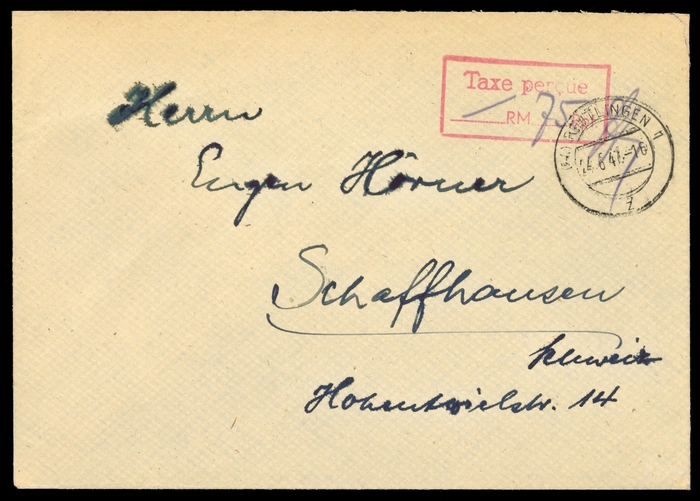 Taxe perçue
RM 75
REUTLINGEN 1
4.6.47.-18
z
Herrn
Eugen Hörner
Schaffhausen
Schweiz
Hohentwielstr. 14